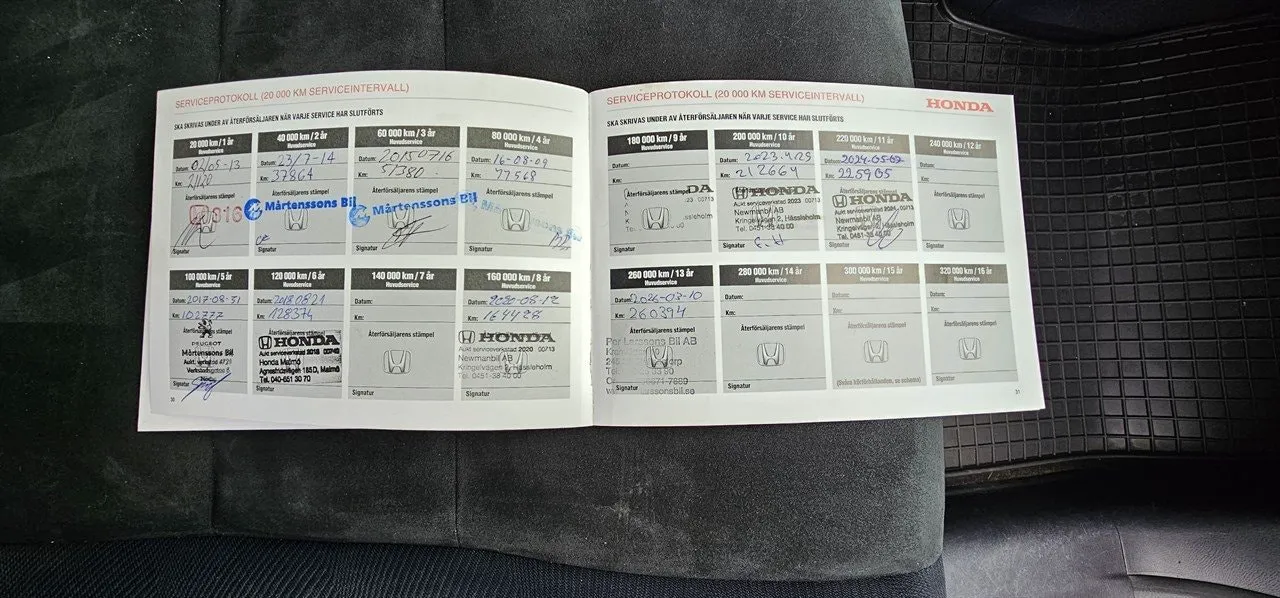 SERVICEPROTOKOLL (20 000 KM SERVICEINTERVALL)
SKA SKRIVAS UNDER AV ÅTERFÖRSÄLJAREN NÄR VARJE SERVICE HAR SLUTFÖRTS
20 000 km / 1 år
Huvudservice
Datum: 02/05-13
Km: 21120
Återförsäljarens stämpel
316
Signatur
40 000 km / 2 år
Huvudservice
Datum: 23/7-14
Km: 37864
Återförsäljarens stämpel
Mårtenssons Bil
Signatur
60 000 km / 3 år
Huvudservice
Datum: 20150716
Km: 51380
Återförsäljarens stämpel
Mårtenssons Bil
Signatur
80 000 km / 4 år
Huvudservice
Datum: 16-08-09
Km: 77568
Återförsäljarens stämpel
Signatur
100 000 km / 5 år
Huvudservice
Datum: 2017-08-31
Km: 102777
Återförsäljarens stämpel
PEUGEOT
Mårtenssons Bil
Signatur
120 000 km / 6 år
Huvudservice
Datum: 20180821
Km: 128374
Återförsäljarens stämpel
HONDA
Aukt serviceverkstad 2018 00743
Honda Malmö
Agnesfridsvägen 185D, Malmö
Tel. 040-651 30 70
Signatur
140 000 km / 7 år
Huvudservice
Datum:
Km:
Återförsäljarens stämpel
Signatur
160 000 km / 8 år
Huvudservice
Datum: 2020-08-12
Km: 164428
Återförsäljarens stämpel
HONDA
Aukt serviceverkstad 2020 00713
Newmanbil AB
Kringelvägen 2, Hässleholm
Tel. 0451-38 40 00
Signatur
30
SERVICEPROTOKOLL (20 000 KM SERVICEINTERVALL)
HONDA
SKA SKRIVAS UNDER AV ÅTERFÖRSÄLJAREN NÄR VARJE SERVICE HAR SLUTFÖRTS
180 000 km / 9 år
Huvudservice
Datum:
Km:
Återförsäljarens stämpel
DA
23 00713
ssleholm
Signatur
200 000 km / 10 år
Huvudservice
Datum: 2023.4.29
Km: 212664
Återförsäljarens stämpel
HONDA
Aukt serviceverkstad 2023 00713
Newmanbil AB
Kringelvägen 2, Hässleholm
Tel. 0451-38 40 00
Signatur
220 000 km / 11 år
Huvudservice
Datum: 2024-05-07
Km: 225905
Återförsäljarens stämpel
HONDA
Aukt serviceverkstad 2024 00713
Newmanbil AB
Kringelvägen 2, Hässleholm
Tel. 0451-38 40 00
Signatur
240 000 km / 12 år
Huvudservice
Datum:
Km:
Återförsäljarens stämpel
Signatur
260 000 km / 13 år
Huvudservice
Datum: 2026-03-10
Km: 260394
Återförsäljarens stämpel
Per Larssons Bil AB
Signatur
280 000 km / 14 år
Huvudservice
Datum:
Km:
Återförsäljarens stämpel
Signatur
300 000 km / 15 år
Huvudservice
Datum:
Km:
Återförsäljarens stämpel
(Svåra körförhållanden, se schema)
320 000 km / 16 år
Huvudservice
Datum:
Km:
Återförsäljarens stämpel
Signatur
31